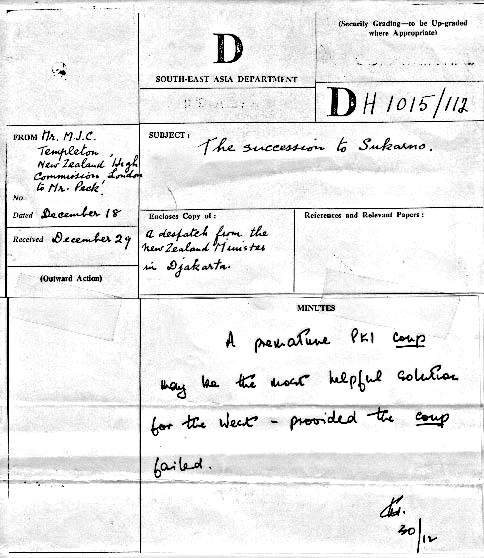 (Security Grading—to be Up-graded
where Appropriate)
D
SOUTH-EAST ASIA DEPARTMENT
DH 1015/112
FROM Mr. M.J.C.
Templeton,
New Zealand High
Commission, London
to Mr. Peck.
No.
Dated December 18
Received December 29
(Outward Action)
SUBJECT:
The succession to Sukarno.
Encloses Copy of :
a despatch from the
New Zealand Minister
in Djakarta.
References and Relevant Papers :
MINUTES
A premature PKI coup
may be the most helpful solution
for the West – provided the coup
failed.
30/12